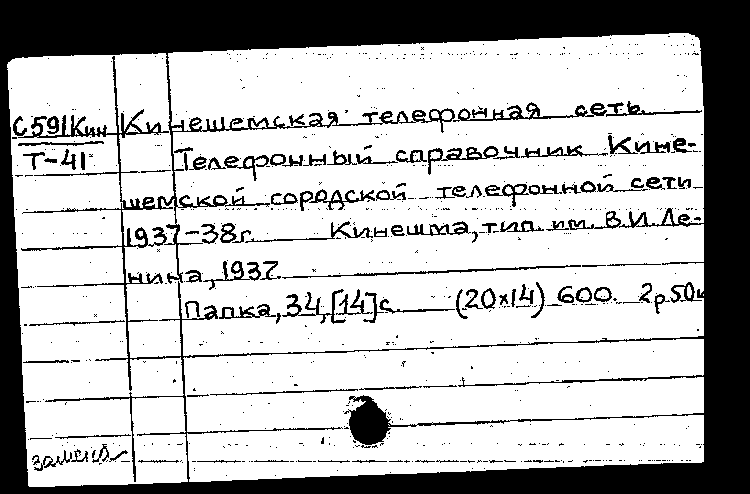 С591Кин Кинешемская телефонная сеть.
Т-41 Телефонный справочник Кине-
шемской городской телефонной сети
1937-38г. Кинешма, тип. им. В.И. Ле-
нина, 1937.
Папка, 34, [14]с. (20х14) 600. 2р.50к
замена